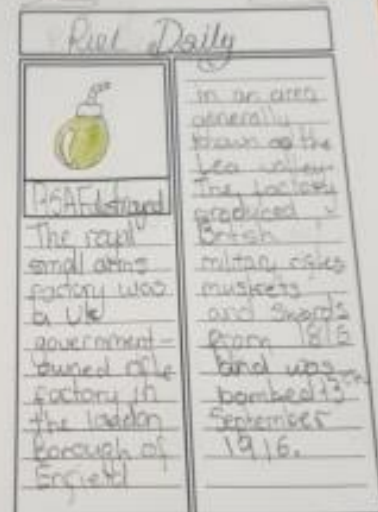 Daily
RSAF destroyed
The royal
small arms
factory was
a UK
government-
owned rifle
factory in
the london
Borough of
Enfield
in an area
generally
known as the
Lea valley.
The factory
produced
British
military rifles
muskets
and swords
from 1816
and was
bombed 13th
September
1916.